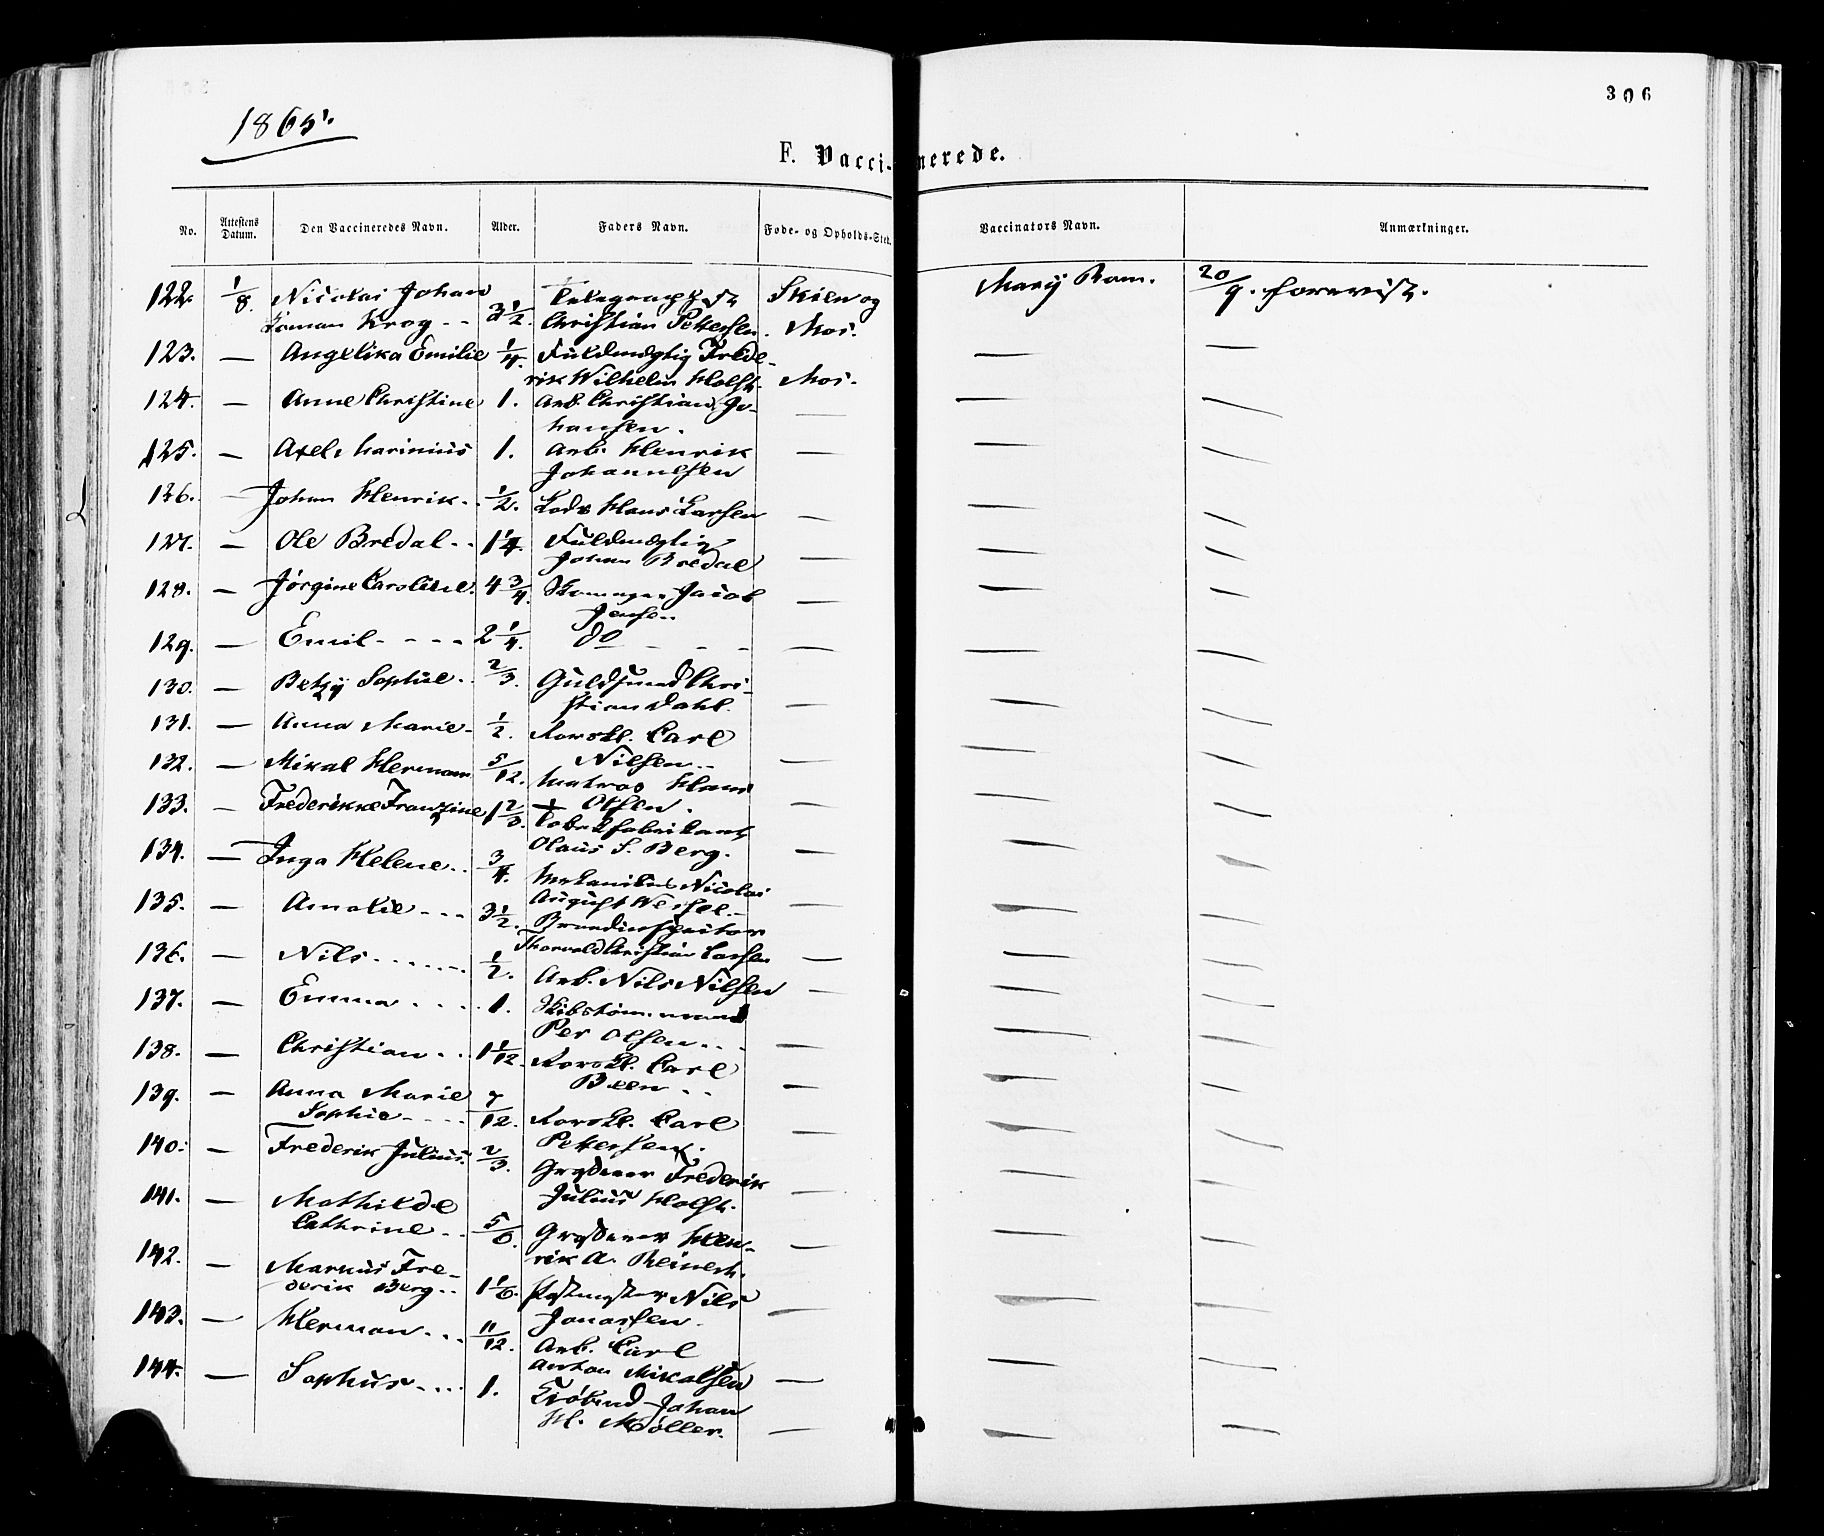 306
1865.
F. Vaccinerede.
No. Attestens Datum. Den Vaccineredes Navn. Alder. Faders Navn. Føde- og Opholds-Sted. Vaccinators Navn. Anmærkninger.
122. 1/8 Nicolai Johan Telegraphist Skien og Mary Rom. 20/9. forevist.
Krog - - 3 1/2. Christian Pettersen. Mos.
123. — Angelika Emilie 1/4. Fuldmægtig Frede- — —
rik Wilhelm Holst. Mos.
124. — Anne Christine 1. Arb. Christian Jo- — — —
hansen.
125. — Axel Marinius 1. Arb. Henrik — — —
Johannesen
126. — Johan Henrik - - 1/2. Lods Hans Larsen — — —
127. — Ole Bredal - - 1 1/4. Fuldmægtig
Johan Bredal — — —
128. — Jørgine Caroline. 4 3/4. Jacob — — —
Jensen
129. — Emil - - - - 2 1/4. do - - - — — —
130. — Betzy Sophie. 2/3. Guldsmed Chri-
stian Dahl. — — —
131. — Anna Marie - 1/2. Carl
Nilsen - - — — —
132. — Mikal Herman 5/12. Matros Hans
Olsen. — — —
133. — Frederikke Franzine 1 2/3. Tobaksfabrikant
Olaus S. Berg. — — —
134. — Inga Helene - - 3/4. Mekanikus Nicolai
August Wessel. - — — —
135. — Amalie - - - 3 1/2. Brandinspektør
Thorvald Christian Larsen — — —
136. — Nils - - - - - - 1/2. Arb. Nils Nilsen — — —
137. — Emma - - - - 1. Skibstømmermand
Per Olsen - - - — — —
138. — Christian - - - 1 1/12. Carl
Been - - — — —
139. — Anna Marie
Sophie - - - - 7/12. Carl
Pettersen. — — —
140. — Frederik Julius. 2/3. Grosserer Frederik
Julius Holst. — — —
141. — Mathilde
Cathrine - - 5/6. Grosserer Hen-
rik A. Reinert. — — —
142. — Markus Fre-
derik Berg - - 1 1/6. Postmester Nils
Jonassen. — — —
143. — Herman - - - 11/12. Arb. Carl
Anton Mikalsen — — —
144. — Sophus - - - - 1. Johan
H. Møller. — — —